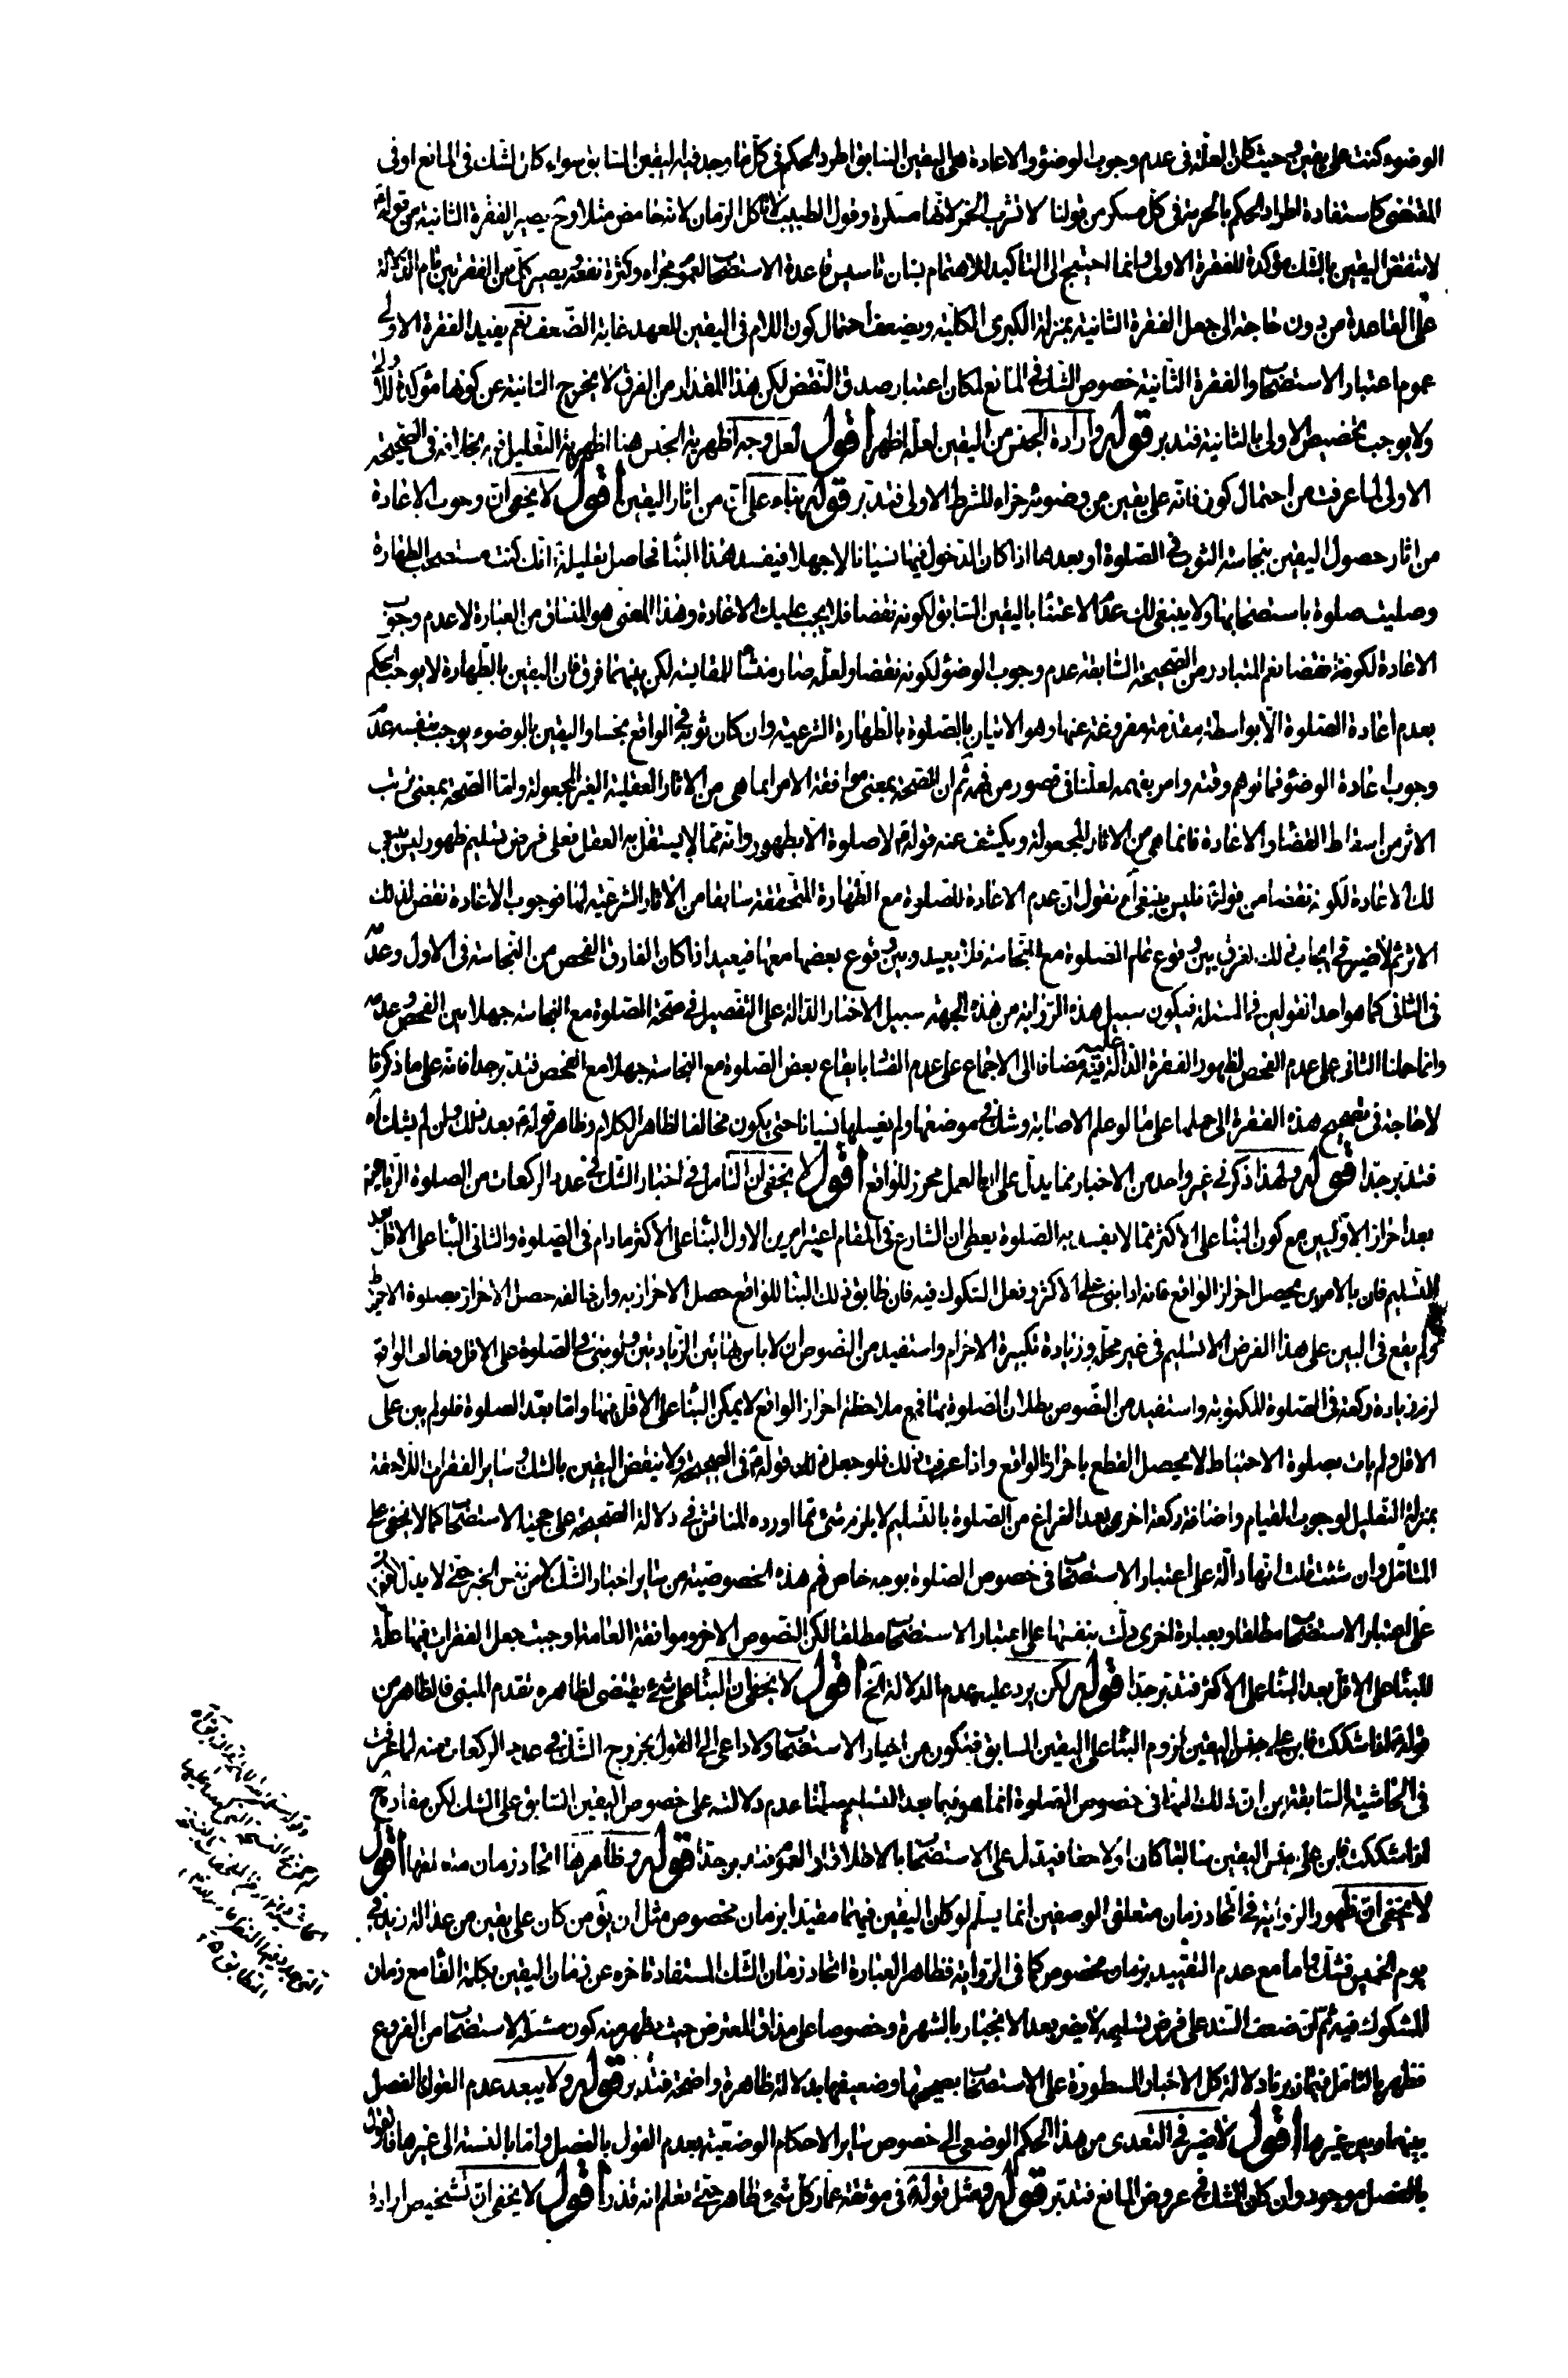 الوضوء كنت على يقين وحيث كان العلة فى عدم وجوب الوضوء والاعادة هى اليقين السابق اطرد الحكم فى كل ما وجد فيه اليقين السابق سواء كان الشك فى المانع او فى
المقتضى كاستفادة اطراد الحكم بالحرمة فى كل مسكر من قولنا لا تشرب الخمر لانها مسكرة وقول الطبيب لا تاكل الرمان لانه حامض مثلا وح يصير الفقرة الثانية من قوله
لا تنقض اليقين بالشك مؤكدة للفقرة الاولى وانما احتيج الى التاكيد للاهتمام بشان تاسيس قاعدة الاستصحاب لعموم مجراه وكثرة نفعه ويصير كل من الفقرتين تام الدلالة
على القاعدة من دون حاجة الى جعل الفقرة الثانية بمنزلة الكبرى الكلية ويضعف احتمال كون اللام فى اليقين للعهد غاية الضعف نعم يفيد الفقرة الاولى
عموم اعتبار الاستصحاب والفقرة الثانية خصوص الشك فى المانع لمكان اعتبار صدق النقض لكن هذا المقدار من الفرق لا يخرج الثانية عن كونها مؤكدة للاولى
ولا يوجب تخصيص الاولى بالثانية فتدبر قوله وارادة الجنس من اليقين لعله اظهر اقول لعل وجه اظهرية الجنس هنا اظهرية التعليل فيه بخلافه فى الصحيحة
الاولى لما عرفت من احتمال كون فانه على يقين من وضوئه جزاء للشرط الاولى فتدبر قوله بناء على ان من اثار اليقين اقول لا يخفى ان وجوب الاعادة
من اثار حصول اليقين بنجاسة الثوب فى الصلوة او بعدها اذا كان الدخول فيها نسيانا لا جهلا فيفسد هذا البناء فحاصل تعليله انك كنت مستصحب الطهارة
وصليت صلوة باستصحابها ولا ينبغى لك عدم الاعتناء باليقين السابق لكونه نقضا فلا يجب عليك الاعادة وهذا المعنى هو المنساق من العبارة لا عدم وجوب
الاعادة لكونه نقضا نعم المتبادر من الصحيحة السابقة عدم وجوب الوضوء لكونه نقضا ولعله صار منشأ للمقايسة لكن بينهما فرق فان اليقين بالطهارة لا يوجب الحكم
بعدم اعادة الصلوة الا بواسطة مقدمة مفروغة عنها وهو الاتيان بالصلوة بالطهارة الشرعية وان كان ثوبه فى الواقع نجسا واليقين بالوضوء يوجب بنفسه عدم
وجوب اعادة الوضوء فما توهم وقته وامر بفهمه لعلنا فى قصور من فهمه ثم ان الصحة بمعنى موافقة الامر انما هى من الاثار العقلية الغير المجعولة واما الصحة بمعنى ترتب
الاثر من اسقاط القضاء والاعادة فانما هى من الاثار المجعولة ويكشف عنه قوله لا صلوة الا بطهور وانه مما لا يستقل به العقل فعلى فرض تسليم ظهور ليس ينبغى
لك الاعادة لكونه نقضا من قوله فليس ينبغى اه نقول ان عدم الاعادة للصلوة مع الطهارة المتحققة سابقا من الاثار الشرعية لها فوجوب الاعادة نقض لذلك
الاثر ثم لا ضير فى ايجاب ذلك لفرق بين وقوع تمام الصلوة مع النجاسة فلا يعيد وبين وقوع بعضها معها فيعيد اذا كان الفارق الفحص من النجاسة فى الاول وعدمه
فى الثانى كما هو احد القولين فى المسئلة فيكون سبيل هذه الرواية من هذه الجهة سبيل الاخبار الدالة على التفصيل فى صحة الصلوة مع النجاسة جهلا بين الفحص وعدمه
وانما حملنا الثانى على عدم الفحص لظهور الفقرة الدالة عليه فيه مضافا الى الاجماع على عدم الفساد بايقاع بعض الصلوة مع النجاسة جهلا مع الفحص فتدبر جدا فانه على ما ذكرنا
لا حاجة فى تصحيح هذه الفقرة الى حملها على ما لو علم الاصابة وشك فى موضعها ولم يغسلها نسيانا حتى يكون مخالفا لظاهر الكلام وظاهر قوله بعد ذلك وان لم يشك اه
فتدبر جدا قوله ولهذا ذكر فى غير واحد من الاخبار مما يدل على ان العمل محرز للواقع اقول لا يخفى ان التامل فى اخبار الشك فى عدد الركعات من الصلوة الرباعية
بعد احراز الاوليين مع كون البناء على الاكثر مما لا يفسد به الصلوة يعطى ان الشارع فى المقام اعتبر امرين الاول البناء على الاكثر ما دام فى الصلوة والثانى البناء على الاقل بعد
التسليم فان بالامرين يحصل احراز الواقع فانه اذا بنى على الاكثر وفعل المشكوك فيه فان طابق ذلك البناء للواقع حصل الاحراز به وان خالفه حصل الاحراز بصلوة الاحتياط
ولم يقع فى البين على هذا الفرض الا تسليم فى غير محله وزيادة تكبيرة الاحرام واستفيد من النصوص ان لا باس بهاتين الزيادتين ولو بنى فى الصلوة على الاقل وخالف الواقع
لزم زيادة ركعة فى الصلوة المكتوبة واستفيد من النصوص بطلان الصلوة بها فمع ملاحظة احراز الواقع لا يمكن البناء على الاقل فيها واما بعد الصلوة فلو لم يبن على
الاقل ولم يات بصلوة الاحتياط لا يحصل القطع باحراز الواقع واذا عرفت ذلك فلو جعل ذلك قوله فى الصحيحة ولا ينقض اليقين بالشك وسائر الفقرات اللاحقة
بمنزلة التعليل لوجوب القيام واضافة ركعة اخرى بعد الفراغ من الصلوة بالتسليم لا يلزم شئ مما اورده المناقش فى دلالة الصحيحة على حجية الاستصحاب كما لا يخفى على
المتامل وان شئت قلت انها دالة على اعتبار الاستصحاب فى خصوص الصلوة بوجه خاص فهم هذه الخصوصية من سائر اخبار الشك لا من نفس الخبر حتى لا يدل
على اعتبار الاستصحاب مطلقا وبعبارة اخرى دلت بنفسها على اعتبار الاستصحاب مطلقا لكن النصوص الاخر وموافقة العامة اوجبت جعل الفقرات فيها علة
للبناء على الاقل بعد البناء على الاكثر فتدبر جدا قوله لكن يرد عليه عدم الدلالة الخ اقول لا يخفى ان البناء على شئ يقتضى لظاهره تقدم المبنى فالظاهر من
قوله اذا شككت فابن على جنس اليقين لزوم البناء على اليقين السابق فتكون من اخبار الاستصحاب ولا داعى الى القول بخروج الشك فى عدد الركعات منه لما عرفت
فى الحاشية السابقة من ان ذلك البناء فى خصوص الصلوة انما هو فيما بعد التسليم سلمنا عدم دلالته على خصوص اليقين السابق على الشك لكن مفاده ح
اذا شككت فابن على جنس اليقين سابقا كان او لاحقا فيدل على الاستصحاب بالاطلاق او العموم فتدبر جدا قوله وظاهرها اتحاد زمان متعلقهما اقول
لا يخفى ان ظهور الرواية فى اتحاد زمان متعلق الوصفين انما يسلم لو كان اليقين فيهما مقيدا بزمان مخصوص مثل ان يق من كان على يقين من عدالة زيد فى
يوم الخميس فشك واما مع عدم التقييد بزمان مخصوص كما فى الرواية فظاهر العبارة اتحاد زمان الشك المستفاد تاخره عن زمان اليقين بكلمة الفاء مع زمان
المشكوك فيه ثم ان ضعف السند على فرض تسليمه لا يضر بعد الانجبار بالشهرة وخصوصا على مذاق المعترض حيث يظهر منه كون مسئلة الاستصحاب من الفروع
فظهر بالتامل فيما ذكرنا دلالة كل الاخبار المسطورة على الاستصحاب بصحيحها وضعيفها بدلالة ظاهرة واضحة فتدبر قوله ولا يبعد عدم القول بالفصل
بينهما وبين غيرها اقول لا ضير فى التعدى من هذا الحكم الوضعى الى خصوص سائر الاحكام الوضعية بعدم القول بالفصل واما بالنسبة الى غيرها فالقول
بالفصل موجود وان كان الشك فى عروض المانع فتدبر قوله ومثل قوله فى موثقة عمار كل شئ طاهر حتى تعلم انه قذر اقول لا يخفى ان تشخيص ارادة